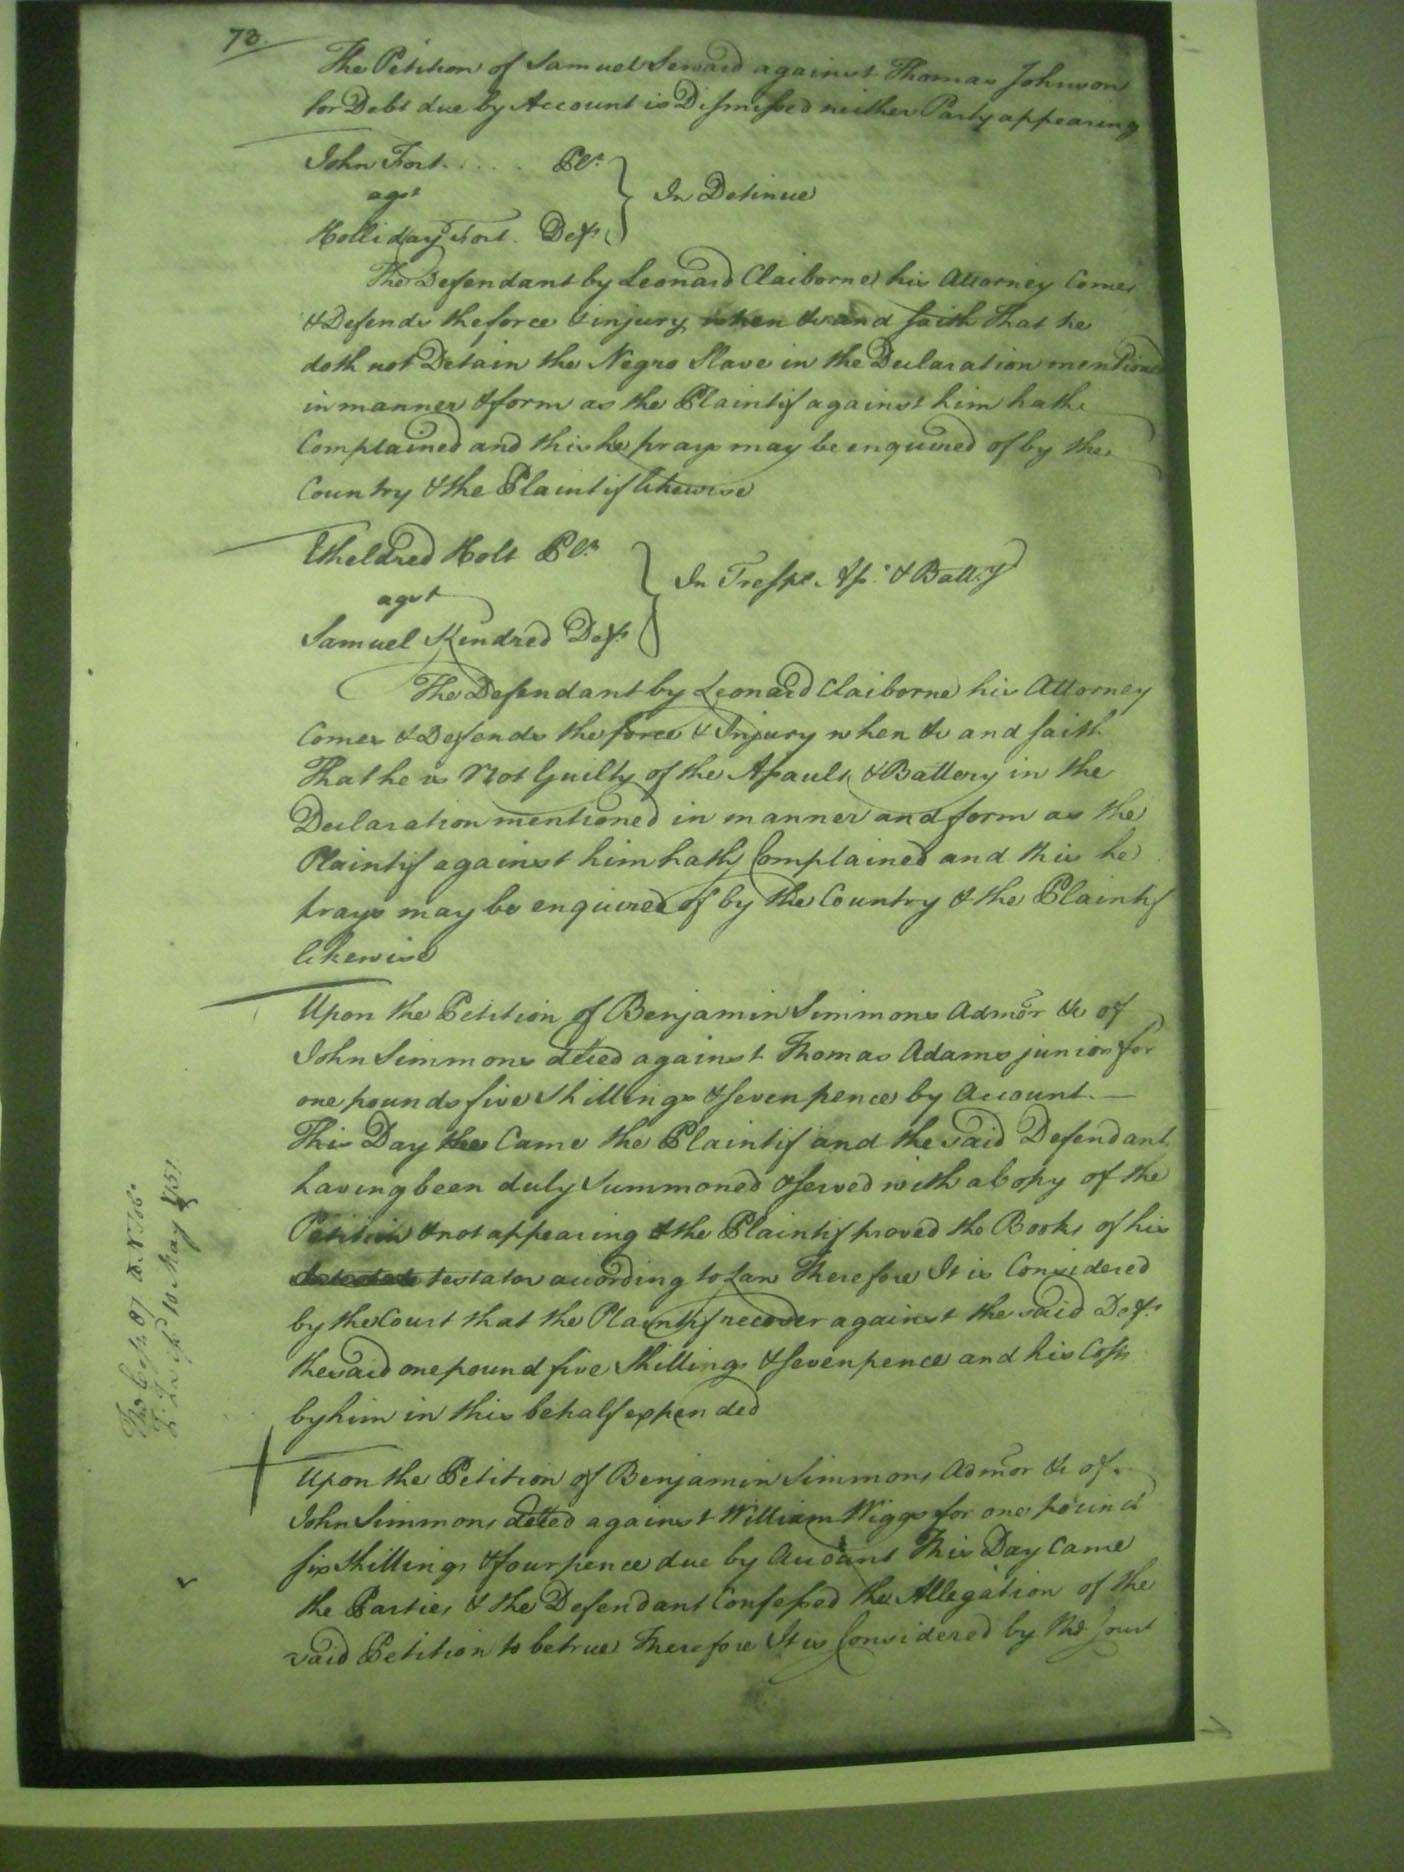 73
The Petition of Samuel Seward against Thomas Johnson
for Debt due by Account is Dismissed neither Party appearing
John Fort . . . . Plt.
agst
Holliday Fort. Deft.
In Detinue
The Defendant by Leonard Claiborne his Attorney Comes
& Defends the force & injury when &c and saith That he
doth not Detain the Negro Slave in the Declaration mentioned
in manner & form as the Plaintif against him hath
Complained and this he prays may be enquired of by the
Country & the Plaintif likewise
Etheldred Holt Plt.
agst
Samuel Kindred Deft.
In Tresps. Ass. & Battry
The Defendant by Leonard Claiborne his Attorney
Comes & Defends the force & Injury when &c and saith
That he is Not Guilty of the Assault & Battery in the
Declaration mentioned in manner and form as the
Plaintif against him hath Complained and this he
prays may be enquired of by the Country & the Plaintif
likewise
Upon the Petition of Benjamin Simmons Admor &c of
John Simmons deced against Thomas Adams junior for
one pounds five Shillings & seven pence by Account.
This Day the Came the Plaintif and the said Defendant
having been duly Summoned & served with a Copy of the
Petition & not appearing & the Plaintif proved the Books of his
testator according to Law Therefore It is Considered
by the Court that the Plaintif recover against the said Deft.
the said one pound five Shillings & seven pence and his Costs
by him in this behalf expended
Upon the Petition of Benjamin Simmons Admor &c of
John Simmons deced against William Wiggs for one pound
six Shillings & four pence due by Account This Day Came
the Parties & the Defendant Confessed the Allegation of the
said Petition to be true Therefore It is Considered by the Court
10 May 1751